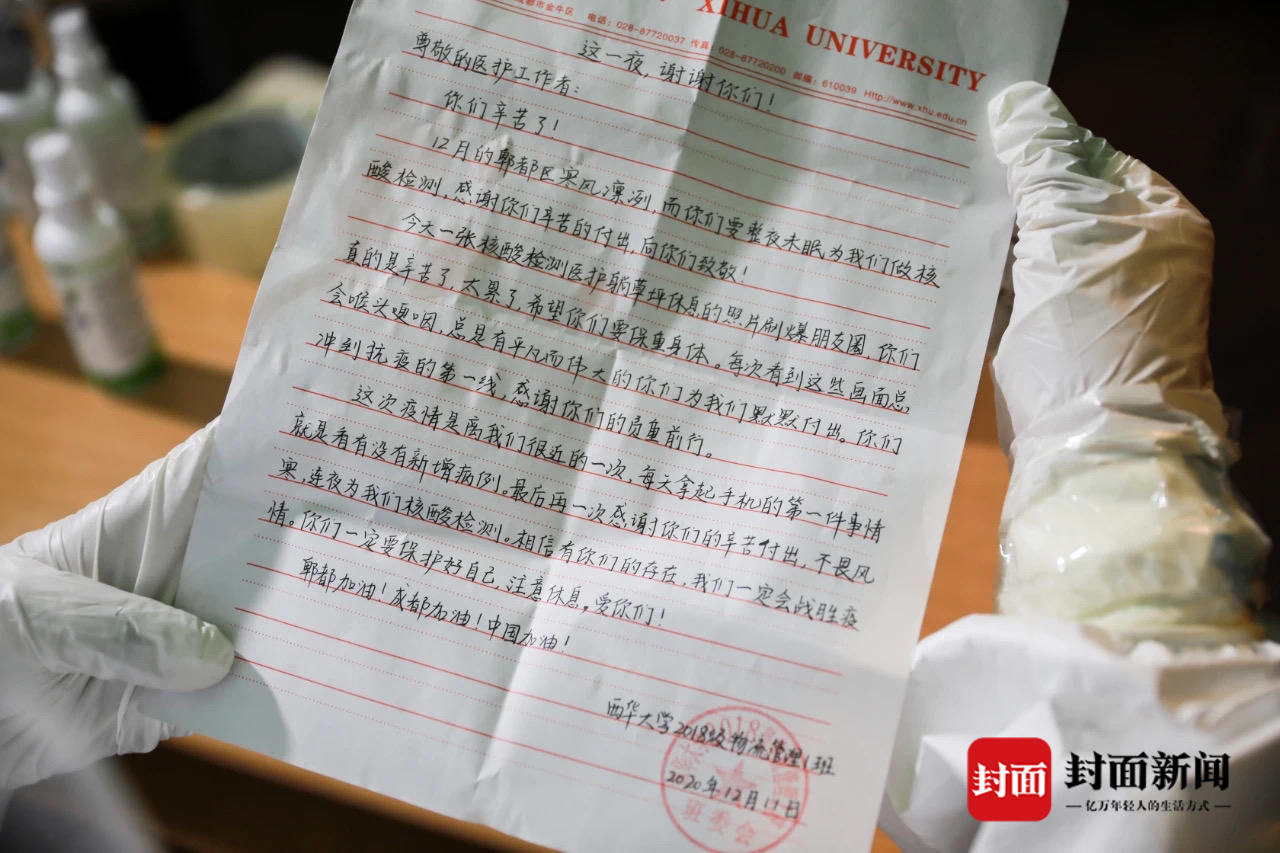 XIHUA UNIVERSITY
成都市金牛区 电话：028-87720037 传真：028-87720200 邮编：610039 Http://www.xhu.edu.cn
这一夜，谢谢你们！
尊敬的医护工作者：
你们辛苦了！
12月的郫都区寒风凛冽，而你们要整夜未眠为我们做核
酸检测，感谢你们辛苦的付出，向你们致敬！
今天一张核酸检测医护躺草坪休息的照片刷爆朋友圈，你们
真的是辛苦了，太累了，希望你们要保重身体。每次看到这些画面总
会喉头哽咽，总是有平凡而伟大的你们为我们默默付出。你们
冲到抗疫的第一线，感谢你们的负重前行。
这次疫情是离我们很近的一次，每天拿起手机的第一件事情
就是看有没有新增病例。最后再一次感谢你们的辛苦付出，不畏风
寒，连夜为我们核酸检测。相信有你们的存在，我们一定会战胜疫
情。你们一定要保护好自己，注意休息。爱你们！
郫都加油！成都加油！中国加油！
西华大学2018级物流管理1班
2020年12月17日
2018
班委会
封面
封面新闻
亿万年轻人的生活方式